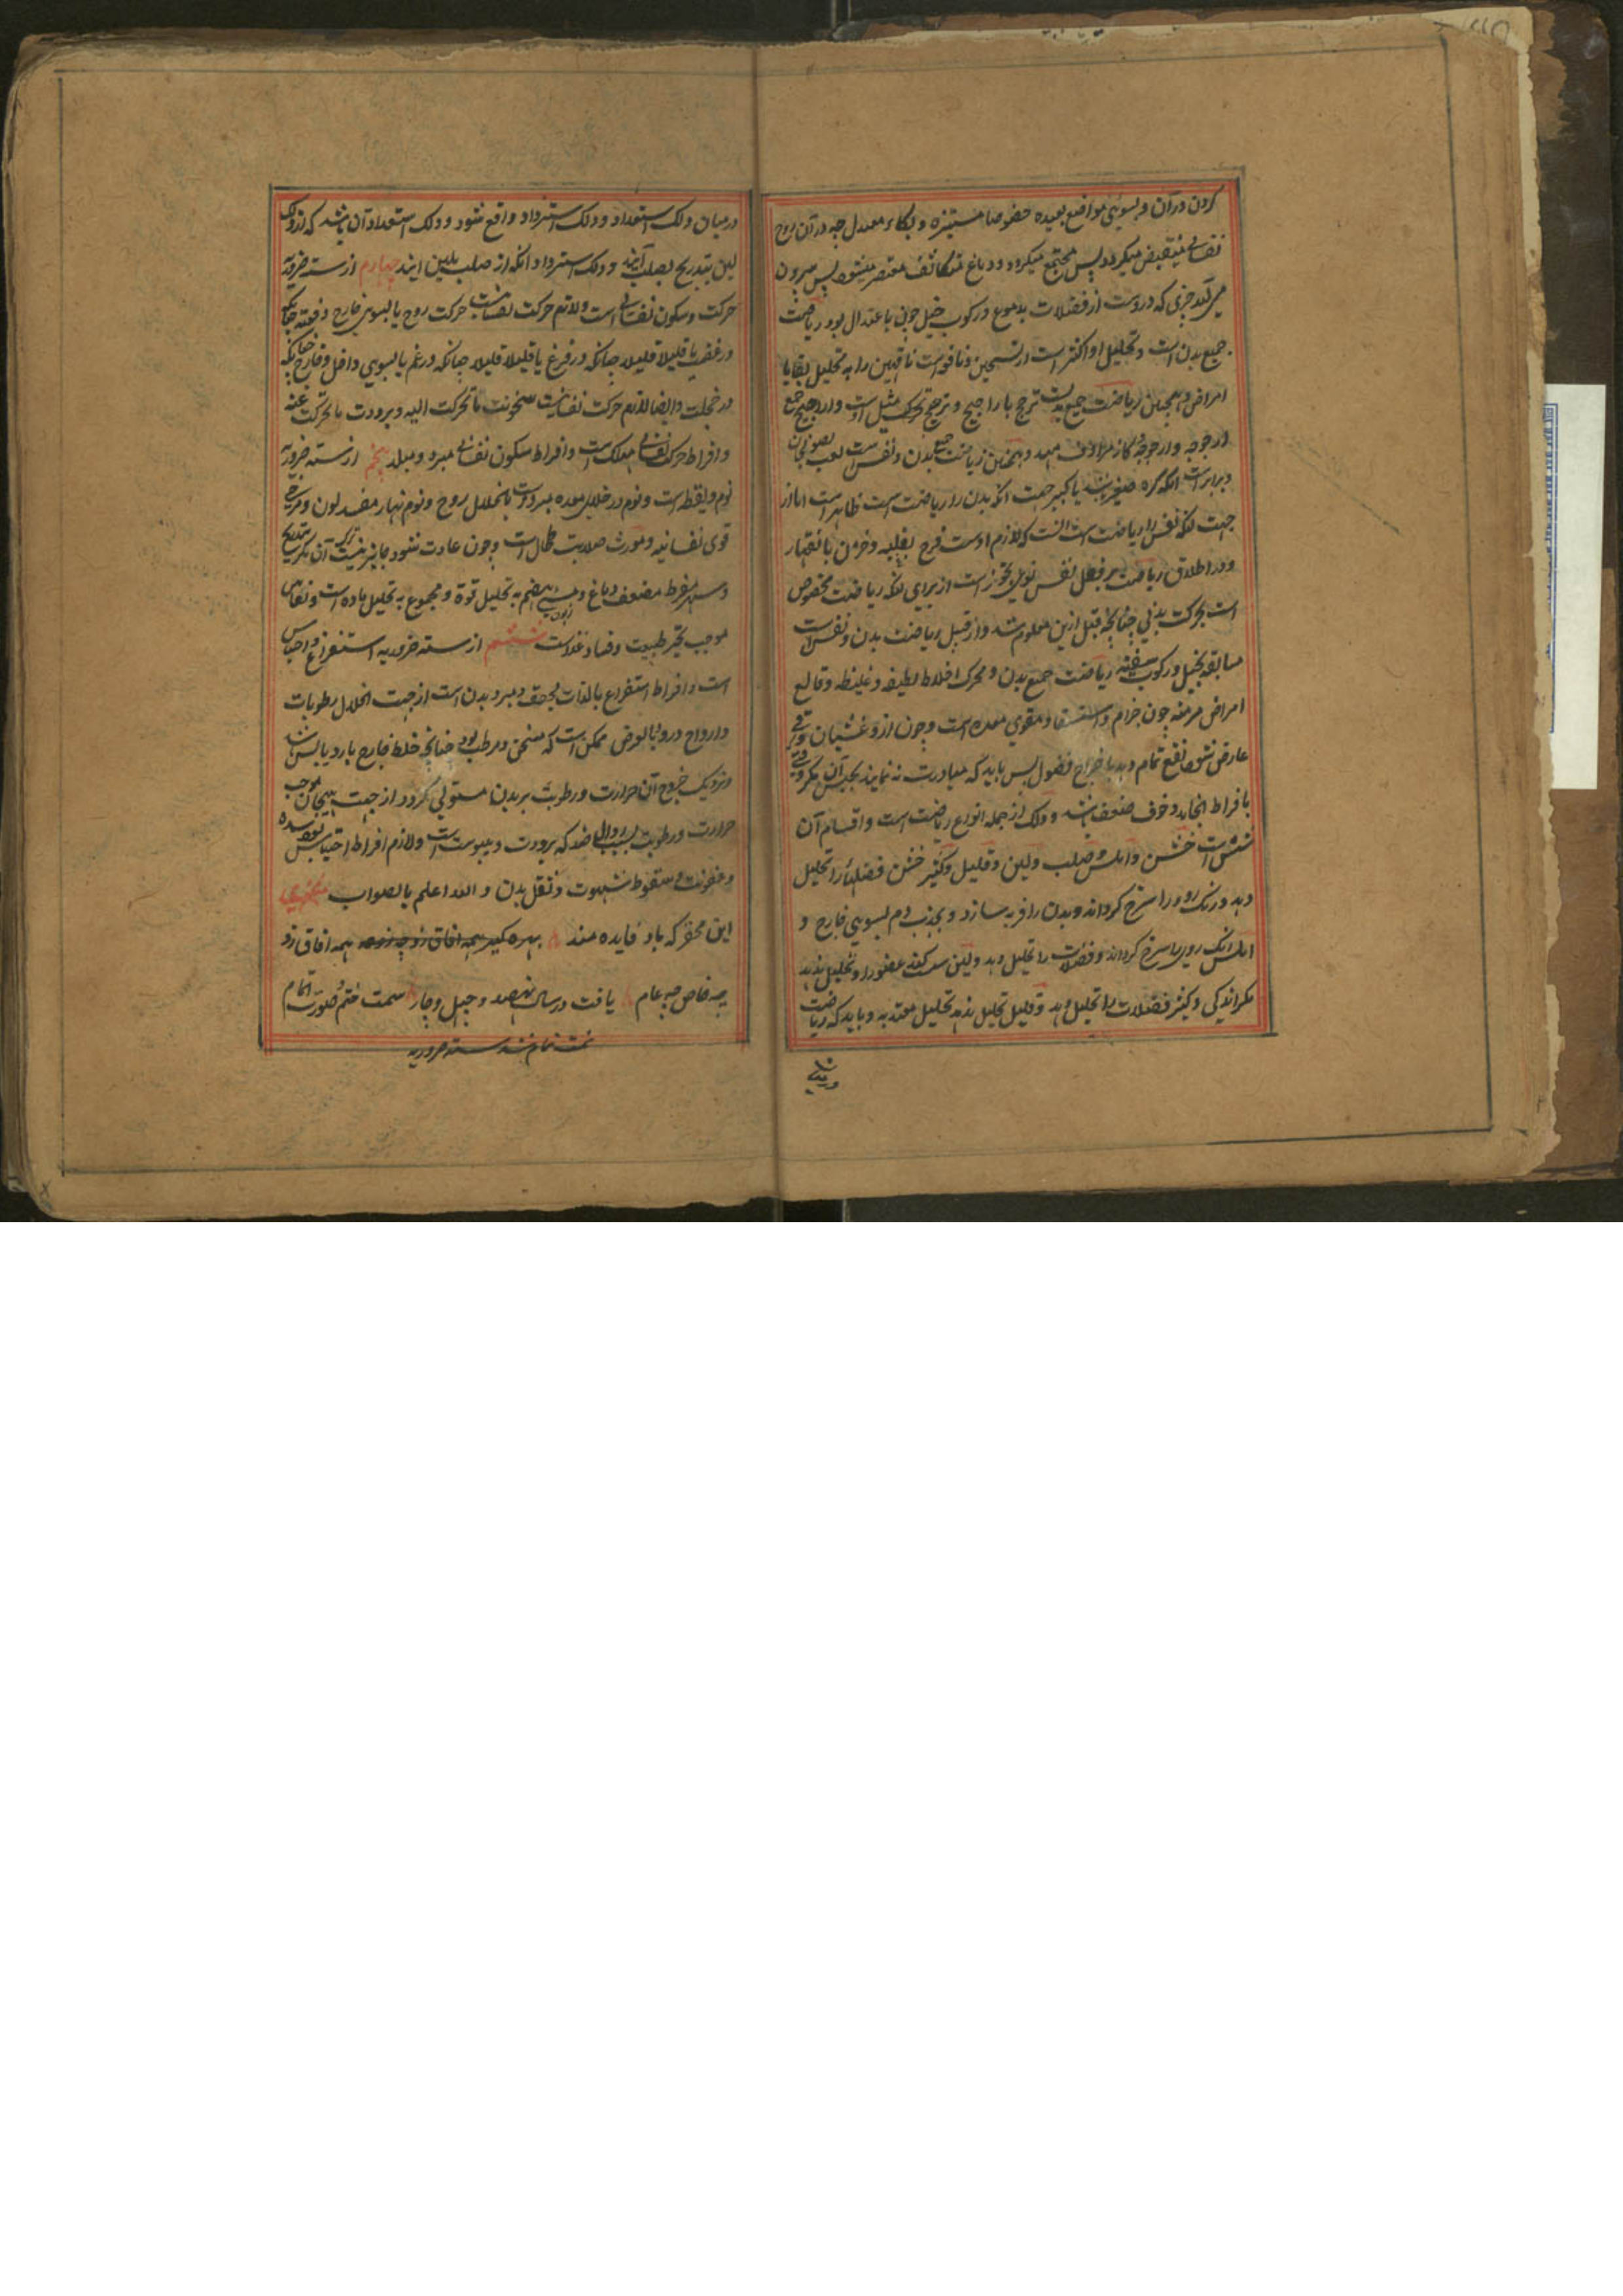 کردن در آن و بسوی مواضع بعیده خصوصا مستنیره و بکاء معتدل چه در آن روح
نفسانی منقبض میگردد پس مجتمع میگردد و دماغ متکاثف معتصر میشود پس بیرون
می آید چیزی که دروست از فضلات بدموع و رکوب خیل چون باعتدال بود ریاضت
جمیع بدن است و تحلیل او اکثر است از تسخین و نافع است ناقهین را به تحلیل بقایا
امراض و همچنان ریاضت جمیع بدنست ترجح با راجیح و ترجح تحرک مثل اوست و اراجیح جمع
ارجوحه و ارجوحه گاز مهد و همچنین ریاضت جمیع بدن و نفس است لعب بصولجان
و برابر است آنکه کره صغیر باشد یا کبیر جهت آنکه بدن را ریاضت است ظاهر است اما از
جهت آنکه نفس را ریاضت است آنست که لازم اوست فرح بغلبه و حزن بانقهار
و در اطلاق ریاضت بر فعل نفس نوعی تجوز است از برای آنکه ریاضت مخصوص
است بحرکت بدنی چنانچه قبل ازین معلوم شد و از قبیل ریاضت بدن و نفس است
مسابقه بخیل و رکوب سفینه ریاضت جمیع بدن و محرک اخلاط لطیفه و غلیظه و قالع
امراض مزمنه چون جزام و استسقا و مقوی معده است و چون ازو غشیان و قی
عارض شود نفع تمام دهد باخراج فضول پس باید که مبادرت نه نمایند بحبس آن مگر وقتی
بافراط انجامد و خوف ضعف باشد و دلک از جمله انواع ریاضت است و اقسام آن
شش است خشن و املس و صلب و لین و قلیل و کثیر خشن فضلات را تحلیل
دهد و رنگ رو را سرخ گرداند و بدن را فربه سازد و بجذب دم بسوی خارج و
املس رنگ روی را سرخ گرداند و فضلات را تحلیل دهد و لین سست کند عضو را و تحلیل ندهد
مگر اندکی و کثیر فضلات را تحلیل دهد و قلیل تحلیل ندهد تحلیل معتد به و باید که ریاضت
در میان دلک استعداد و دلک استرداد واقع شود و دلک استعداد آن باشد که از دلک
لین بتدریج بصلب آیند و دلک استرداد آنکه از صلب بلین آیند چهارم از سته ضروریه
حرکت و سکون نفسانی است و لازم حرکت نفسانیت حرکت روح یا بسوی خارج دفعة چنانکه
در غضب یا قلیلا قلیلا چنانکه در فرح یا قلیلا قلیلا چنانکه در غم یا بسوی داخل و خارج چنانکه
در خجلت و ایضا لازم حرکت نفسانیت سخونت ما تحرکت الیه و برودت ما تحرکت عنه
و افراط حرکت نفسانی مهلک است و افراط سکون نفسانی مبرد و مبلد پنجم از سته ضروریه
نوم و یقظه است و نوم در خلای معده مبرد است بانحلال روح و نوم نهار مفسد لون و مرخی
قوی نفسانیه و مورث صلابت طحال است و چون عادت شود جایز نیست ترک آن مگر بتدریج
و سهر مفرط مضعف دماغ و مسیی هضم به تحلیل قوة و مجموع به تحلیل ماده است و نعاس
موجب تحیر طبیعت و فساد غذاست ششم از سته ضروریه استفراغ و احتباس
است و افراط استفراغ بالذات مجفف و مبرد بدن است از جهت انحلال رطوبات
و ارواح درو و بالعرض ممکن است که مسخن و مرطب بود چنانچه خلط خارج بارد یا بس باشد
و نزدیک خروج آن حرارت و رطوبت بر بدن مستولی گردد از جهت هیجان موجب
حرارت و رطوبت بسبب زوال ضد که برودت و یبوست است و لازم افراط احتباس بود سده
و عفونت و سقوط شهوت و ثقل بدن و الله اعلم بالصواب
این مختصر که باد فایده مند بهره گیر همه آفاق زو چه همه آفاق زو
چه خاص چه عام یافت در سال نهصد و چهل و چار سمت ختم و صورت اتمام
تمت تمام شد سته ضروریه